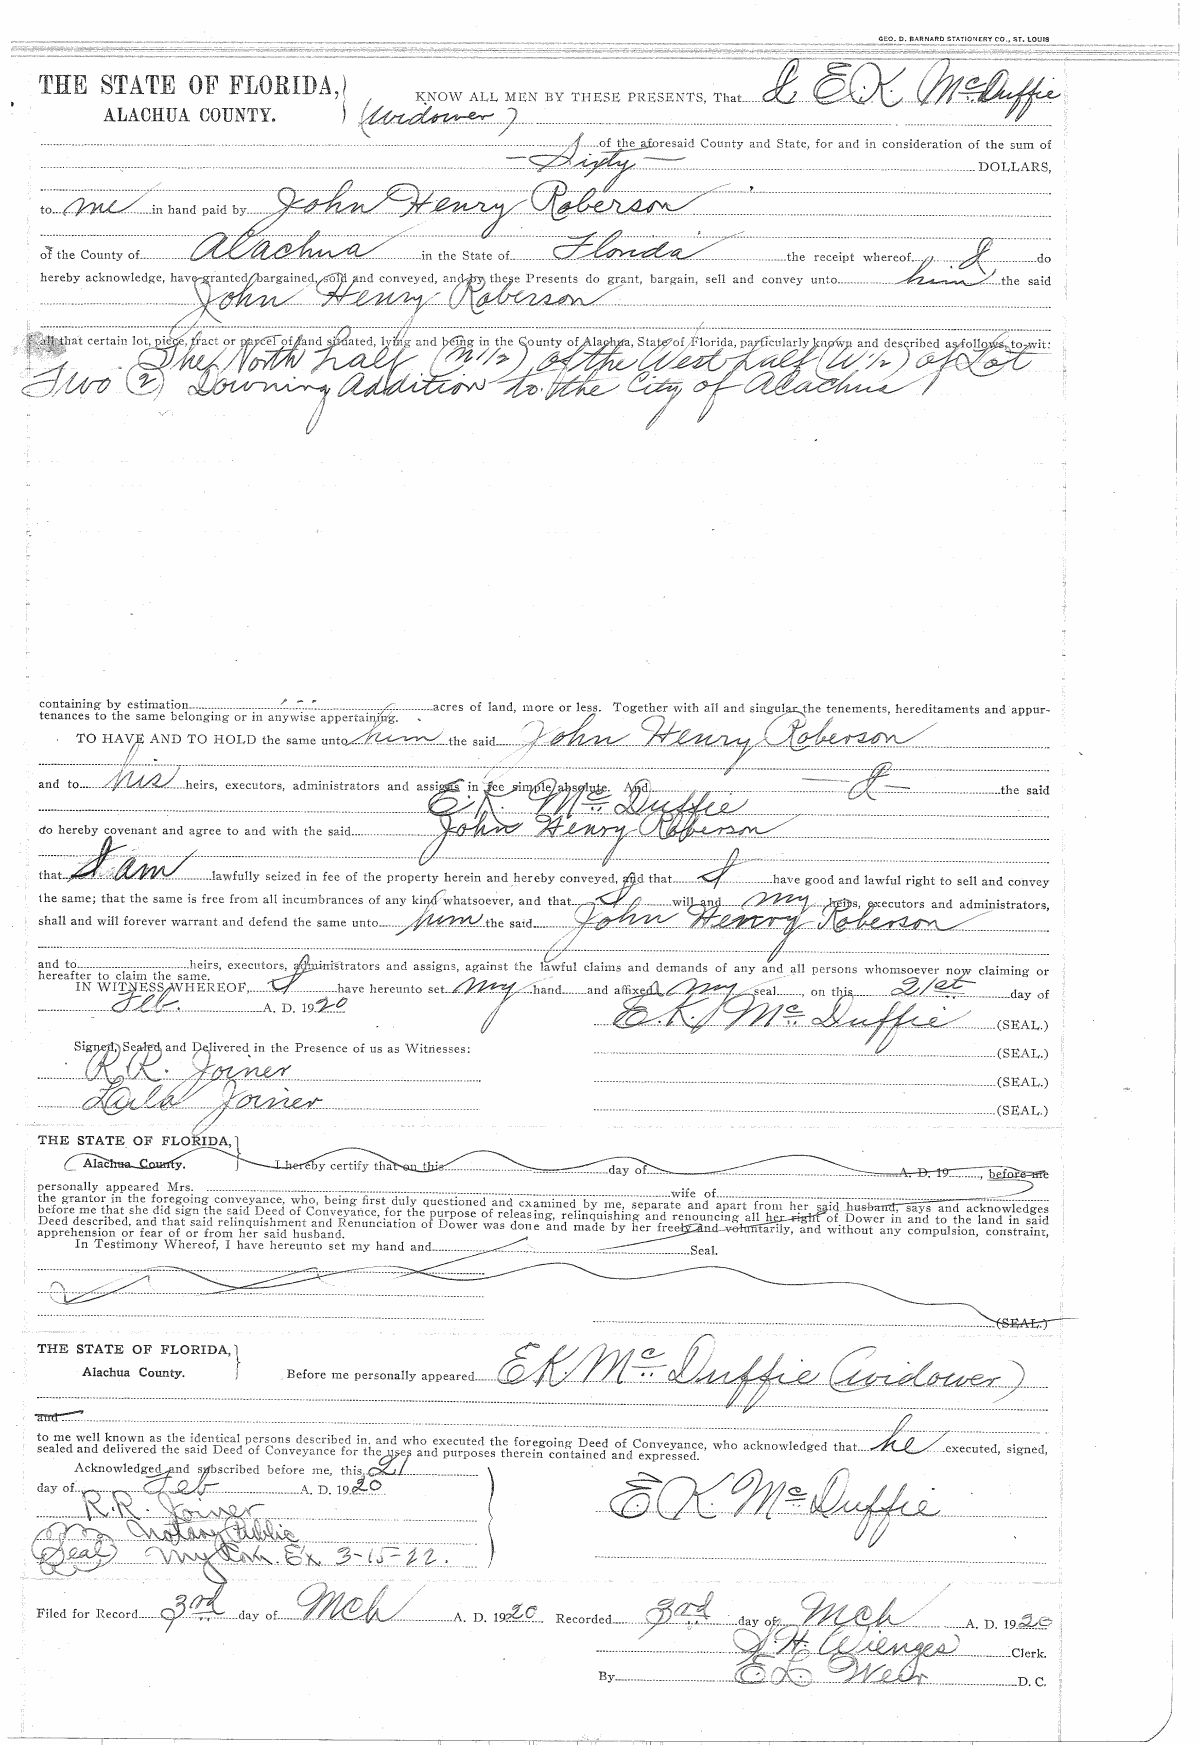 GEO. D. BARNARD STATIONERY CO., ST. LOUIS
THE STATE OF FLORIDA, KNOW ALL MEN BY THESE PRESENTS, That I, E.K. McDuffie
ALACHUA COUNTY. (Widower)
of the aforesaid County and State, for and in consideration of the sum of
— Sixty — DOLLARS,
to me in hand paid by John Henry Roberson
of the County of Alachua in the State of Florida the receipt whereof I do
hereby acknowledge, have granted, bargained, sold and conveyed, and by these Presents do grant, bargain, sell and convey unto him the said
John Henry Roberson
all that certain lot, piece, tract or parcel of land situated, lying and being in the County of Alachua, State of Florida, particularly known and described as follows, to-wit:
The North half (N 1/2) of the West half (W 1/2) of Lot
Two (2) Downing Addition to the City of Alachua
containing by estimation - - - acres of land, more or less. Together with all and singular the tenements, hereditaments and appur-
tenances to the same belonging or in anywise appertaining.
TO HAVE AND TO HOLD the same unto him the said John Henry Roberson
and to his heirs, executors, administrators and assigns in fee simple absolute. And — I — the said
E.K. McDuffie
do hereby covenant and agree to and with the said John Henry Roberson
that I am lawfully seized in fee of the property herein and hereby conveyed, and that I have good and lawful right to sell and convey
the same; that the same is free from all incumbrances of any kind whatsoever, and that I will and my heirs, executors and administrators,
shall and will forever warrant and defend the same unto him the said John Henry Roberson
and to heirs, executors, administrators and assigns, against the lawful claims and demands of any and all persons whomsoever now claiming or
hereafter to claim the same.
IN WITNESS WHEREOF, I have hereunto set my hand and affixed my seal, on this 21st day of
Feb. A. D. 1920 E.K. McDuffie (SEAL.)
Signed, Sealed and Delivered in the Presence of us as Witnesses: (SEAL.)
R.R. Joiner (SEAL.)
Lula Joiner (SEAL.)
THE STATE OF FLORIDA,
Alachua County. I hereby certify that on this day of A. D. 19 , before me
personally appeared Mrs. wife of
the grantor in the foregoing conveyance, who, being first duly questioned and examined by me, separate and apart from her said husband, says and acknowledges
before me that she did sign the said Deed of Conveyance, for the purpose of releasing, relinquishing and renouncing all her right of Dower in and to the land in said
Deed described, and that said relinquishment and Renunciation of Dower was done and made by her freely and voluntarily, and without any compulsion, constraint,
apprehension or fear of or from her said husband.
In Testimony Whereof, I have hereunto set my hand and Seal.
(SEAL.)
THE STATE OF FLORIDA,
Alachua County. Before me personally appeared E K McDuffie (widower)
and
to me well known as the identical persons described in, and who executed the foregoing Deed of Conveyance, who acknowledged that he executed, signed,
sealed and delivered the said Deed of Conveyance for the uses and purposes therein contained and expressed.
Acknowledged and subscribed before me, this 21
day of Feb A. D. 1920 E K. McDuffie
R.R. Joiner
Notary Public
(Seal) My Com. Ex 3-15-22.
Filed for Record 3rd day of Mch A. D. 1920 Recorded 3rd day of Mch A. D. 1920
S.H. Wienges Clerk.
By E L Weir D. C.